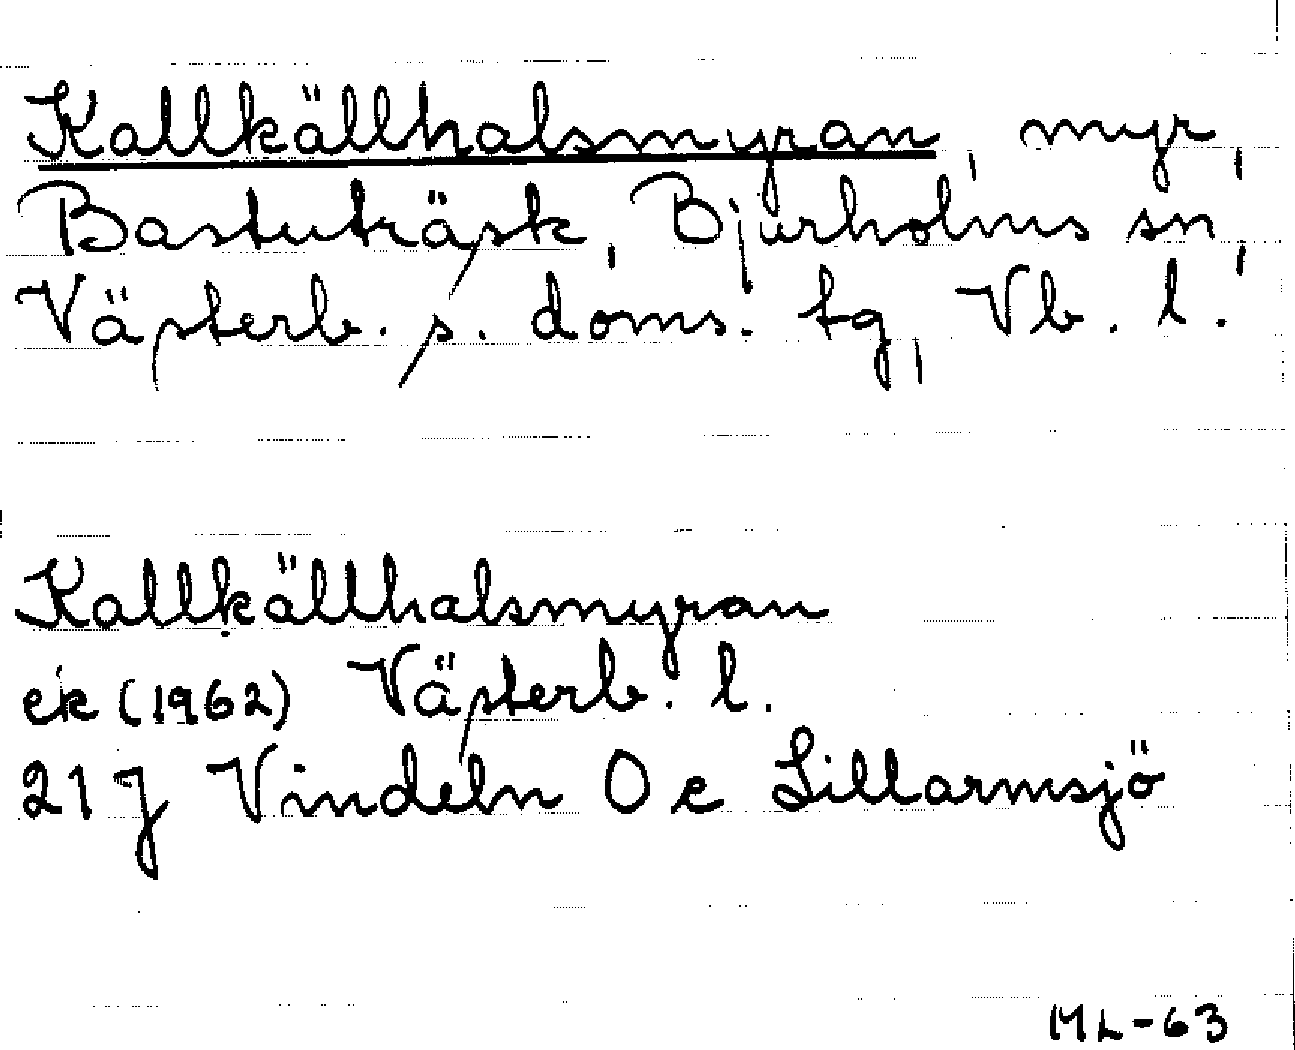 Kallkällhalsmyran, myr,
Bastuträsk, Bjurholms sn,
Västerb. s. doms. tg, Vb. l.
Kallkällhalsmyran
ek (1962) Västerb. l.
21 J Vindeln 0 e Lillarmsjö
ML-63